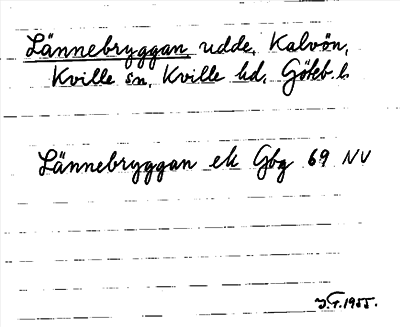 Lännebryggan udde, Kalvön,
Kville sn, Kville hd, Göteb. l.
Lännebryggan ek Gbg 69 NV
1955.